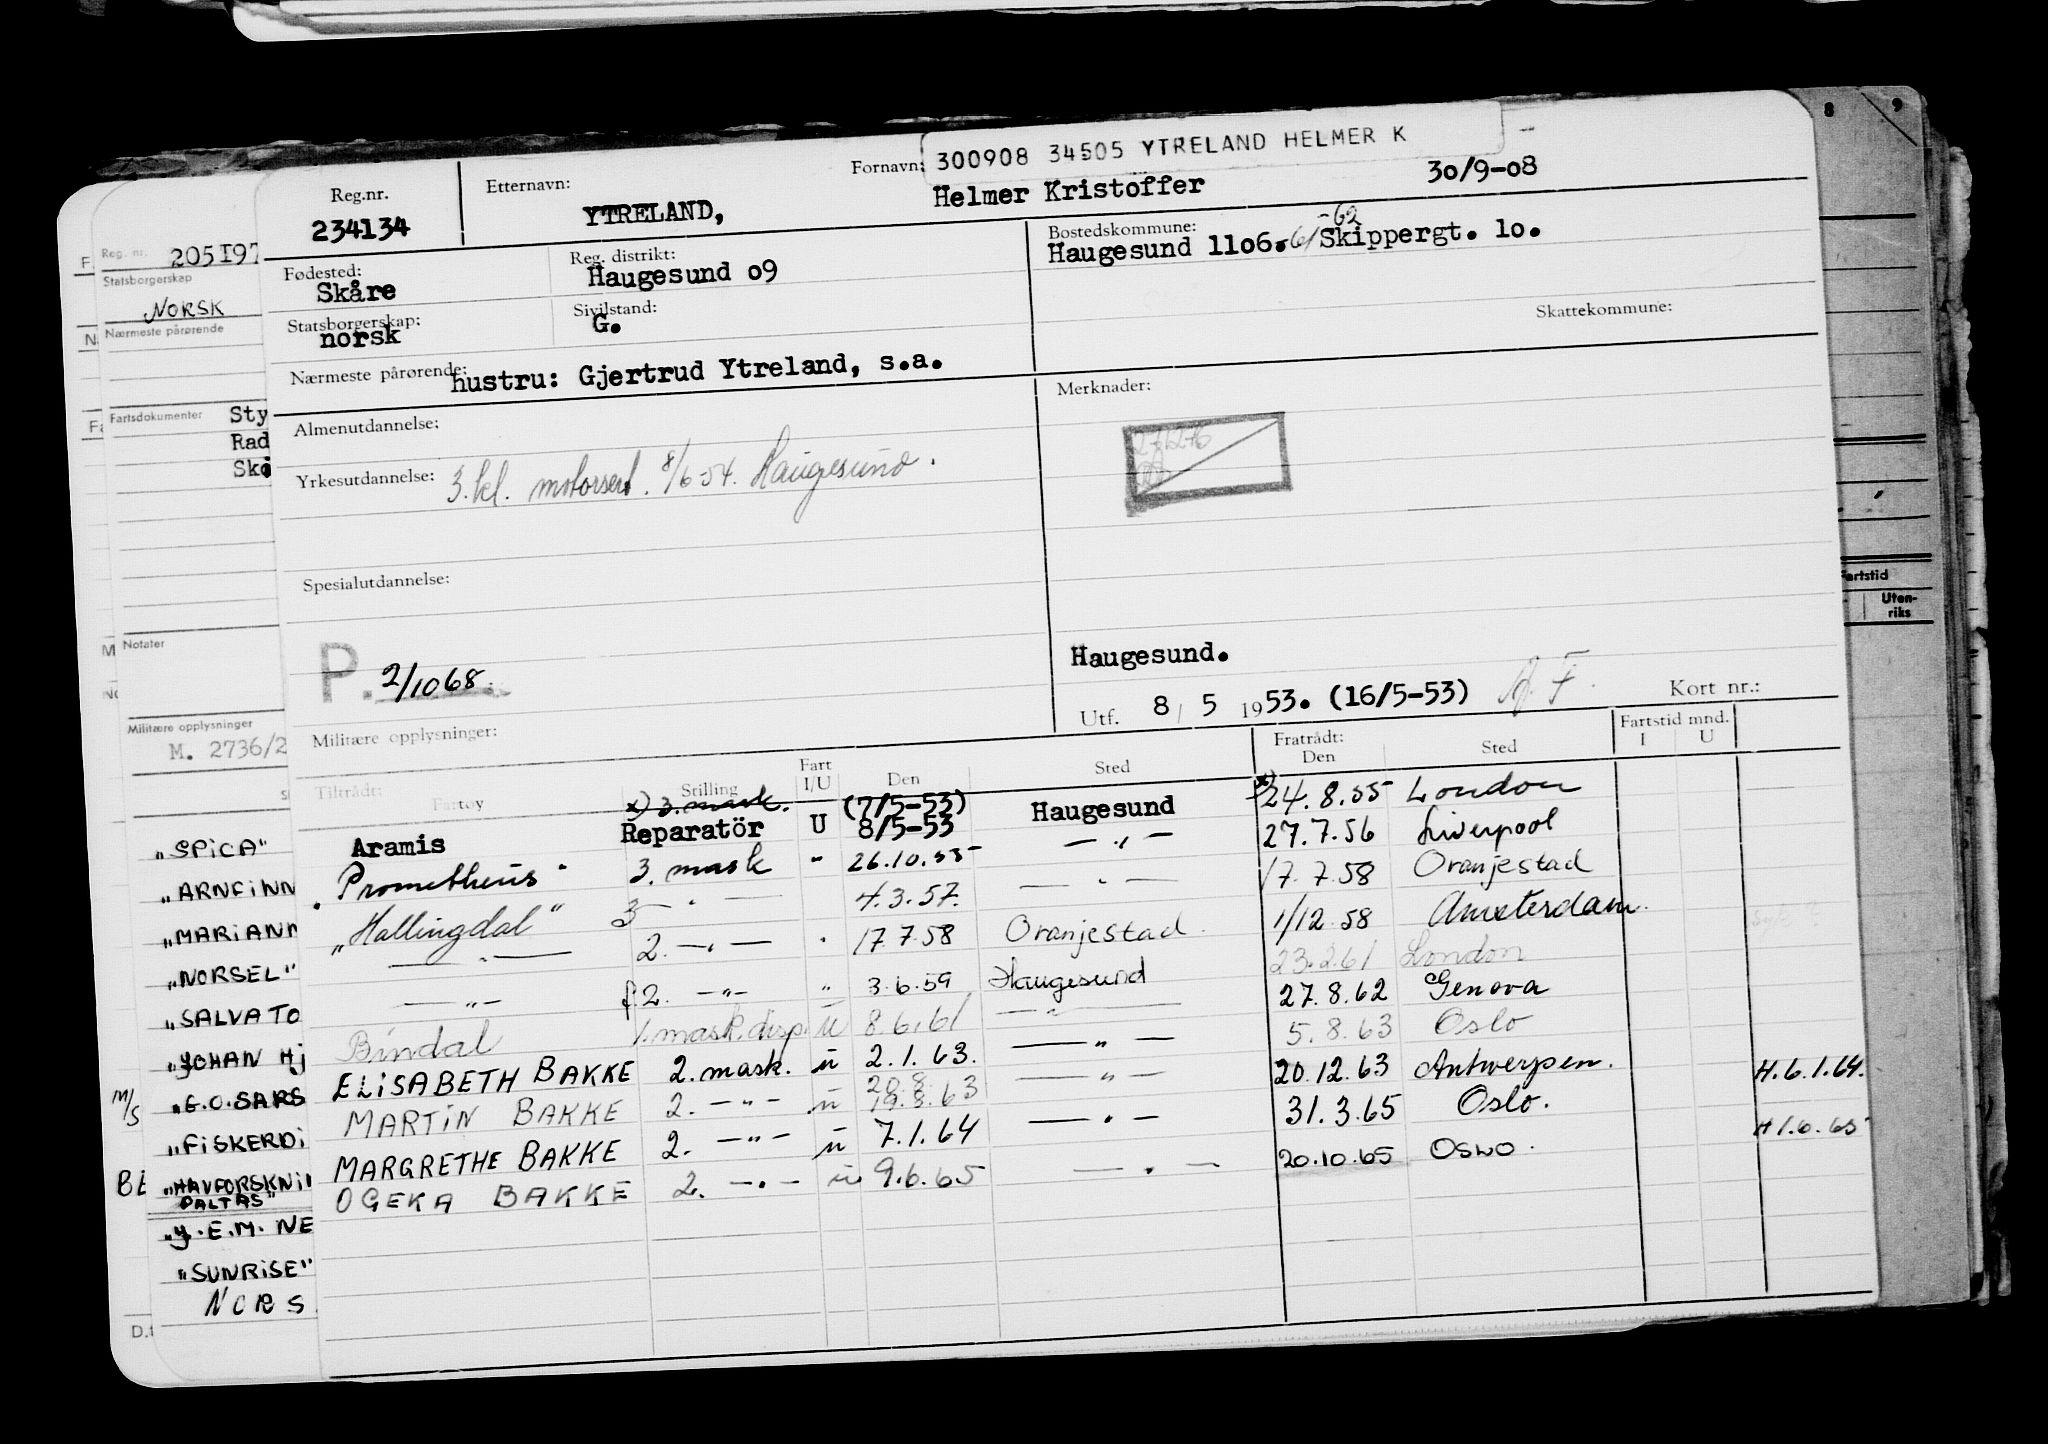 300908 34505 YTRELAND HELMER K
Reg.nr. 234134
Etternavn: YTRELAND,
Fornavn: Helmer Kristoffer 30/9-08
Fødested: Skåre
Reg. distrikt: Haugesund o9
Bostedskommune: -62
Haugesund 11o6. 61 Skippergt. 1o.
Statsborgerskap: norsk
Sivilstand: G.
Skattekommune:
Nærmeste pårørende: hustru: Gjertrud Ytreland, s.a.
Merknader:
Almenutdannelse:
Yrkesutdannelse: 3. kl. motorsert. 8/6-54. Haugesund.
Spesialutdannelse:
P. 2/1068.
Haugesund.
Utf. 8/ 5 1953. (16/5-53)
Kort nr.:
Militære opplysninger:
Tiltrådt: Fartøy Stilling Fart I/U Den Sted Fratrådt: Den Sted Fartstid mnd. I U
x) 3. mask. (7/5-53) x) 24.8.55 London
Aramis Reparatör U 8/5-53 Haugesund 27.7.56 Liverpool
"Prometheus" 3. mask " 26.10.55 — " — 17.7.58 Oranjestad
"Hallingdal" 3 — " — 4.3.57. — " — 1/12.58 Amsterdam.
— " — 2. — " — " 17.7.58 Oranjestad. 23.2.61 London
— " — f2. — " — " 3.6.59 Haugesund 27.8.62 Genova
Bindal 1. mask. disp. U 8.6.61 — " — 5.8.63 Oslo
ELISABETH BAKKE 2. mask. u 2.1.63. — " — 20.12.63 Antwerpen. H.6.1.64.
MARTIN BAKKE 2. — " — u 20.8. 19.8.63 — " — 31.3.65 Oslo.
MARGRETHE BAKKE 2. — " — u 7.1.64 — " — 20.10.65 OSLO. H 1.6.65
OGEKA BAKKE 2. — " — u 9.6.65 — " —
Reg. nr. 205197
Statsborgerskap
NORSK
Nærmeste pårørende
Fartsdokumenter Sty
Rad
Skø
Notater
Militære opplysninger
M. 2736/2
"SPICA"
"ARNFINN
"MARIANN
"NORSEL"
"SALVATO
"JOHAN Hj
M/S "G.O.SARS
"FISKERDI
"HAVFORSKNI
PALTAS"
"J.E.M. NE
"SUNRISE"
NORS
8 9
Fartstid
Uten-
riks